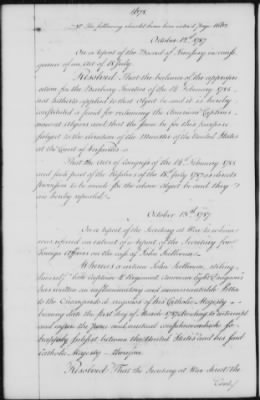 1678
The following should have been entered page 1680
October 12th 1787
On a report of the Board of Treasury in conse
quence of an Act of 18 July
Resolved That the balance of the appropri
ation for the Barbary Treaties of the 14 February 1785
not hitherto applied to that object be and it is hereby
constituted a fund for redeeming the American Captives
now at Algiers and that the same be for this purpose
subject to the direction of the Minister of the United States
at the Court of Versailles
That the Acts of Congress of the 14 February 1785
and such part of the Resolve of the 18 July 1787 as directs
provision to be made for the above object be and they
are hereby repealed.
October 13th 1787
On a report of the Secretary at War to whom
was referred an extract of a report of the Secretary for
Foreign Affairs on the case of John Sullivan
Whereas a certain John Sullivan, stiling
himself "late Captain 4 Regiment American Light Dragoons"
has written an inflammatory and unwarrantable letter
to the Encargado de negocios of his Catholic Majesty
bearing date the first day of March 1787 tending to interrupt
and injure the peace and mutual confidence which so
happily subsist between the United States and his said
Catholic Majesty therefore
Resolved That the Secretary at War direct the